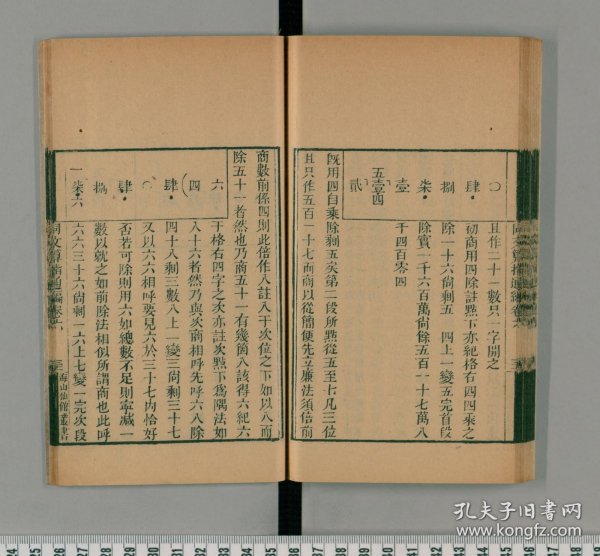 〇 且作二十一數只一字開之
肆 初商用四除註點下亦紀格右四四乘之
捌 除一十六尙剩五 四上一變五完首段
柒 除實一千六百萬尙餘五百一十七萬八
壹 千四百零四
五壹四
貳
既用四自乘除剩五矣第二段所點從五至七凡三位
且只作五百一十七而商以從簡便先立廉法須倍前
商數前係四則此倍作八註入于次位之下如以八而
除五十一者然也乃商五十一有幾箇八該得六紀六
六 于格右四字之次亦註次點下爲隅法如
四 八十六者然乃與次商相呼先呼六八除
肆 四十八剩三數八上一變三尙剩三十七
〇 又以六六相呼要見六於三十七內恰好
肆 否若可除則用六如總數不足則寧減一
捌 數以就之如前除法相似所謂商也此呼
一柒六 六六三十六尙剩一六上七變一完次段
同文算指通編卷六
海山仙館叢書
孔夫子旧书网
www.kongfz.com
24 25 26 27 28 29 30 31 32 33 34 35 36 37 38 39 40 41 42 43 44 45 46 47 48